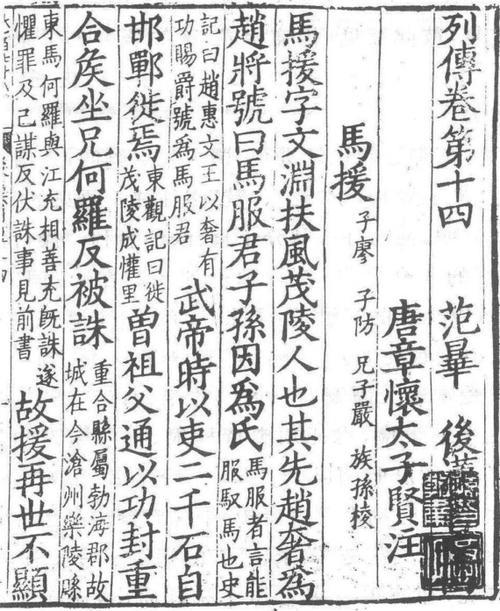 列傳卷第十四 范曄 後
唐章懷太子賢注
馬援 子廖 子防 兄子嚴 族孫棱
馬援字文淵扶風茂陵人也其先趙奢爲
趙將號曰馬服君子孫因爲氏 馬服者言能服馭馬也史
記曰趙惠文王以奢有功賜爵號為馬服君 武帝時以吏二千石自
邯鄲徙焉 東觀記曰徙茂陵成懽里 曾祖父通以功封重
合矦坐兄何羅反被誅 重合縣屬勃海郡故城在今滄州樂陵縣
東馬何羅與江充相善充旣誅遂懼罪及己謀反伏誅事見前書 故援再世不顯